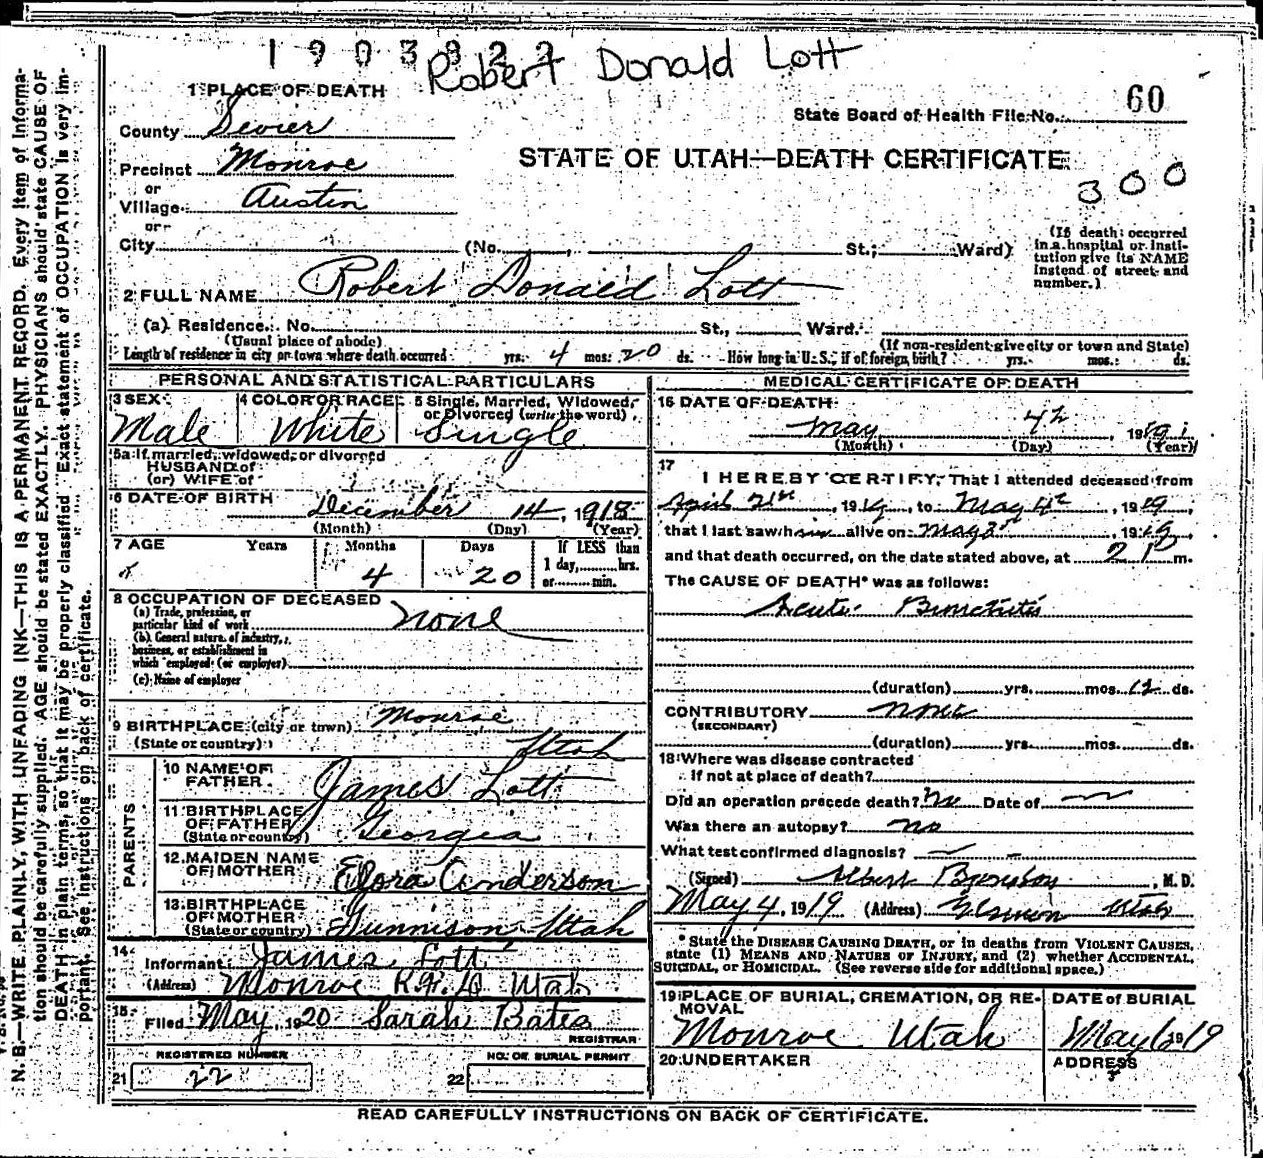 1903822
Robert Donald Lott
1 PLACE OF DEATH
State Board of Health File No. 60
County Sevier
STATE OF UTAH—DEATH CERTIFICATE
Precinct Monroe
300
or
Village Austin
or
City (No. , St.; Ward)
(If death occurred in a hospital or institution give its NAME instead of street and number.)
2 FULL NAME Robert Donald Lott
(a) Residence. No. St., Ward.
(Usual place of abode) (If non-resident give city or town and State)
Length of residence in city or town where death occurred yrs. 4 mos. 20 ds. How long in U.S., if of foreign birth? yrs. mos. ds.
PERSONAL AND STATISTICAL PARTICULARS
3 SEX Male
4 COLOR OR RACE White
5 Single, Married, Widowed, or Divorced (write the word) Single
5a If married, widowed, or divorced
HUSBAND of
(or) WIFE of
6 DATE OF BIRTH December 14, 1918
(Month) (Day) (Year)
7 AGE Years Months Days If LESS than
4 20 1 day, hrs.
or min.
8 OCCUPATION OF DECEASED
(a) Trade, profession, or
particular kind of work none
(b) General nature of industry,
business, or establishment in
which employed (or employer)
(c) Name of employer
9 BIRTHPLACE (city or town) Monroe
(State or country) Utah
PARENTS
10 NAME OF FATHER James Lott
11 BIRTHPLACE OF FATHER (State or country) Georgia
12 MAIDEN NAME OF MOTHER Elora Anderson
13 BIRTHPLACE OF MOTHER (State or country) Gunnison Utah
14 Informant James Lott
(Address) Monroe Utah
15 Filed May, 1920 Sarah Bates
REGISTRAR
REGISTERED NUMBER NO. OF BURIAL PERMIT
21 22
22
MEDICAL CERTIFICATE OF DEATH
16 DATE OF DEATH
May 4
(Month) (Day) (Year)
17
I HEREBY CERTIFY, That I attended deceased from
April 21st, 1919, to May 4th, 1919,
that I last saw him alive on May 3rd, 1919,
and that death occurred, on the date stated above, at m.
The CAUSE OF DEATH* was as follows:
Acute Bronchitis
(duration) yrs. mos. 12 ds.
CONTRIBUTORY none
(SECONDARY)
(duration) yrs. mos. ds.
18 Where was disease contracted
if not at place of death?
Did an operation precede death? No Date of
Was there an autopsy? no
What test confirmed diagnosis?
(Signed) Albert , M. D.
May 4, 1919 (Address) Utah
* State the DISEASE CAUSING DEATH, or in deaths from VIOLENT CAUSES,
state (1) MEANS AND NATURE OF INJURY, and (2) whether ACCIDENTAL,
SUICIDAL, or HOMICIDAL. (See reverse side for additional space.)
19 PLACE OF BURIAL, CREMATION, OR REMOVAL DATE of BURIAL
Monroe Utah May 6 1919
20 UNDERTAKER ADDRESS
READ CAREFULLY INSTRUCTIONS ON BACK OF CERTIFICATE.
N. B.—WRITE PLAINLY, WITH UNFADING INK—THIS IS A PERMANENT RECORD. Every item of Informa-
tion should be carefully supplied. AGE should be stated EXACTLY. PHYSICIANS should state CAUSE OF
DEATH in plain terms, so that it may be properly classified. Exact statement of OCCUPATION is very im-
portant. See instructions on back of certificate.